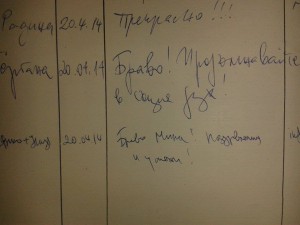 Родица 20.4.14 Прекрасно!!!
20.04.14 Браво! Продължавайте
в същия дух!
20.04.14 Браво Мими! Поздравления
и успехи!